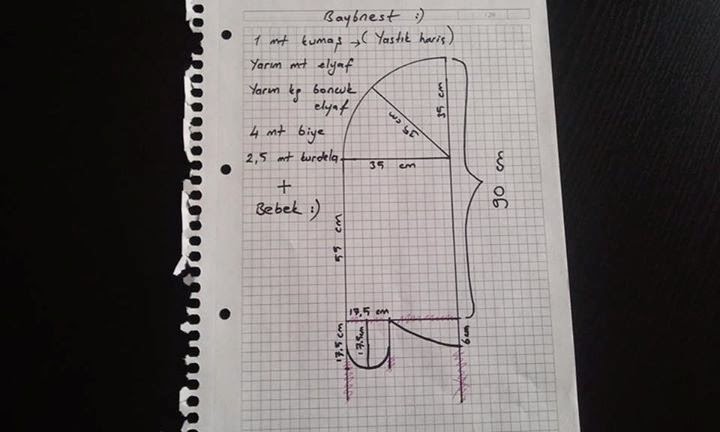 Baybnest :)
1 mt kumaş → ( Yastık hariç )
Yarım mt elyaf
Yarım kg boncuk
elyaf
4 mt biye
2,5 mt kurdela
+
Bebek :)
35 cm
35 cm
35 cm
90 cm
55 cm
17,5 cm
17.5 cm
17.5cm
6 cm